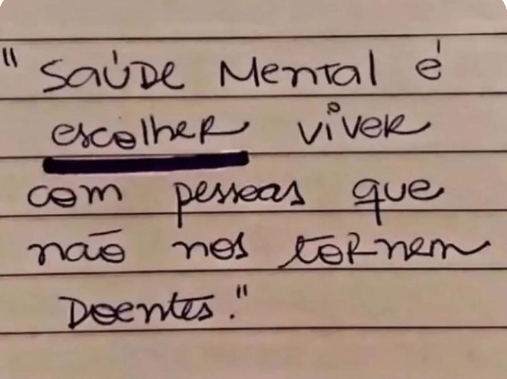 "Saúde Mental é
escolher viver
com pessoas que
não nos tornem
Doentes."